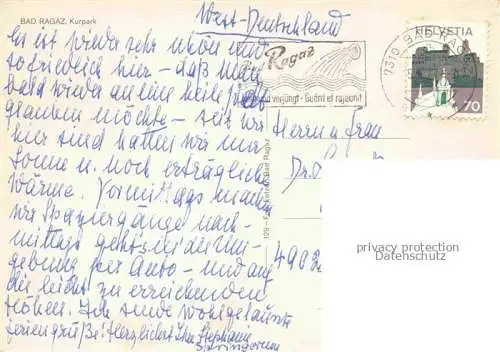 BAD RAGAZ, Kurpark
West-Deutschland
HELVETIA
7310 BAD RAGAZ
Bad Ragaz
verjüngt · Guérit et rajeunit
70
Es ist wieder sehr schön und
so friedlich hier – daß man
bald wieder an eine heile Welt
glauben möchte – seit wir
hier sind hatten wir nur
Sonne u. noch erträgliche
Wärme. Vormittags machen
wir Spaziergänge nach-
mittags geht's in die Um-
gebung per Auto – und auf
die leicht zu erreichenden
Höhen. Ich sende wohlgelaunte
Feriengrüße! Herzlichst Ihre Stephanie
Herrn u. Frau
Dr.
490
privacy protection
Datenschutz